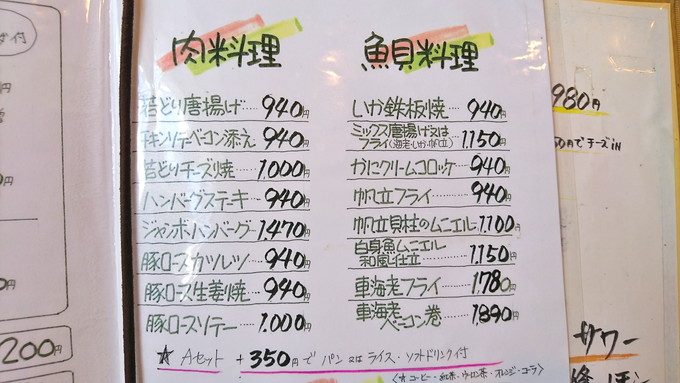 肉料理
若どり唐揚げ…940円
チキンソテーベーコン添え 940円
若どりチーズ焼…1.000円
ハンバーグステーキ…940円
ジャンボハンバーグ…1.470円
豚ロースカツレツ…940円
豚ロース生姜焼…940円
豚ロースソテー…1.000円
魚貝料理
いか鉄板焼…940円
ミックス唐揚げ又は
フライ(海老・いか・帆立) 1.150円
かにクリームコロッケ…940円
帆立フライ…940円
帆立貝柱のムニエル…1.100円
白身魚ムニエル
和風仕立…1.150円
車海老フライ…1.780円
車海老
ベーコン巻…1.890円
☆ Aセット +350円で パン又はライス・ソフトドリンク付
(☆コーヒー・紅茶・ウーロン茶・オレンジ・コーラ)
付
200円
980円
50円でチーズiN
サワー